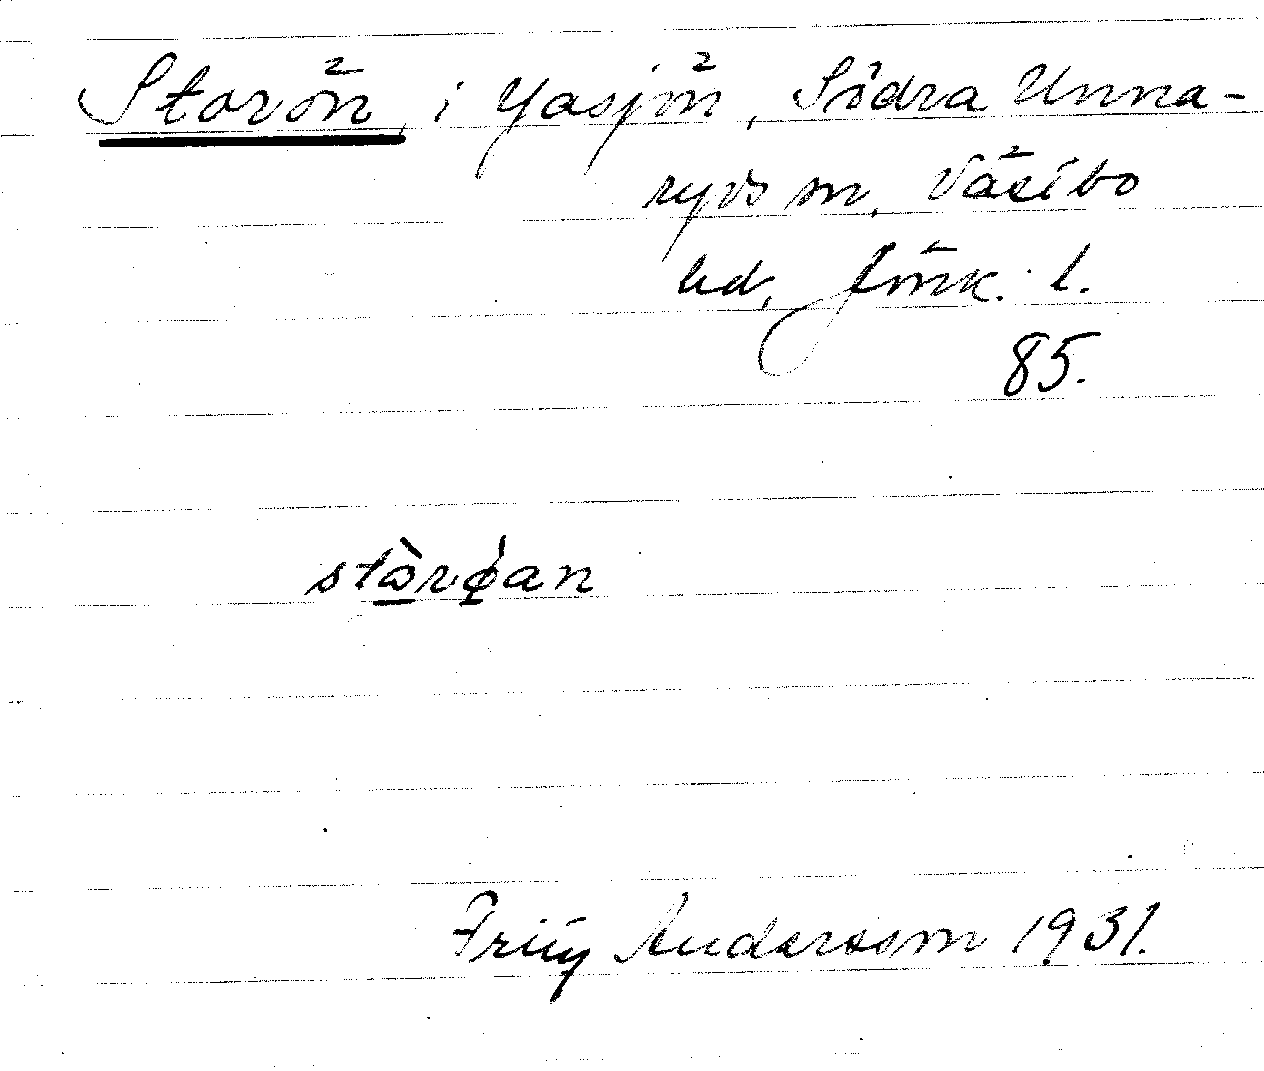 Storön, i Yasjön, Södra Unna-
ryds sn, Västbo
hd, Jönk. l.
85.
stòrø̀an
Fritz Andersson 1931.